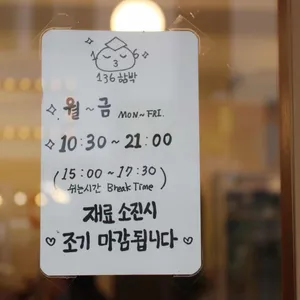 1 3 6
136함박
월~금 MON~FRI.
10:30~21:00
(15:00~17:30)
쉬는시간 Break Time
재료 소진시
조기 마감됩니다